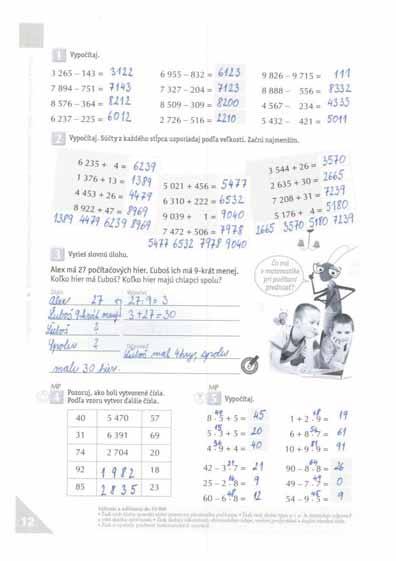 1 Vypočítaj.
3 265 – 143 = 3122 6 955 – 832 = 6123 9 826 – 9 715 = 111
7 894 – 751 = 7143 7 327 – 204 = 7123 8 888 – 556 = 8332
8 576 – 364 = 8212 8 509 – 309 = 8200 4 567 – 234 = 4333
6 237 – 225 = 6012 2 726 – 516 = 2210 5 432 – 421 = 5011
2 Vypočítaj. Súčty z každého stĺpca usporiadaj podľa veľkosti. Začni najmenším.
6 235 + 4 = 6239
1 376 + 13 = 1389
4 453 + 26 = 4479
8 922 + 47 = 8969
1389 4479 6239 8969
5 021 + 456 = 5477
6 310 + 222 = 6532
9 039 + 1 = 9040
7 472 + 506 = 7978
5477 6532 7978 9040
3 544 + 26 = 3570
2 635 + 30 = 2665
7 208 + 31 = 7239
5 176 + 4 = 5180
2665 3570 5180 7239
3 Vyrieš slovnú úlohu.
Alex má 27 počítačových hier. Ľuboš ich má 9-krát menej.
Koľko hier má Ľuboš? Koľko hier majú chlapci spolu?
Čo má v matematike pri počítaní prednosť?
Zápis Výpočet
Alex 27 27:9=3
Ľuboš 9-krát menej 3+27=30
Ľuboš ?
Spolu ? Ľuboš mal 4 hry, spolu
malé 30 hier.
MP
4 Pozoruj, ako boli vytvorené čísla.
Podľa vzoru vytvor ďalšie čísla.
40 5 470 57
31 6 391 69
74 2 704 20
92 1982 18
85 2835 23
MP
5 Vypočítaj.
8 · 5 + 5 = 45 1 + 2 · 9 = 19
5 · 3 + 5 = 20 6 + 8 · 7 = 61
4 · 9 + 4 = 40 10 + 9 · 9 = 91
42 – 3 · 7 = 21 90 – 8 · 8 = 26
25 – 2 · 8 = 9 49 – 7 · 7 = 0
60 – 6 · 8 = 12 54 – 9 · 5 = 9
12